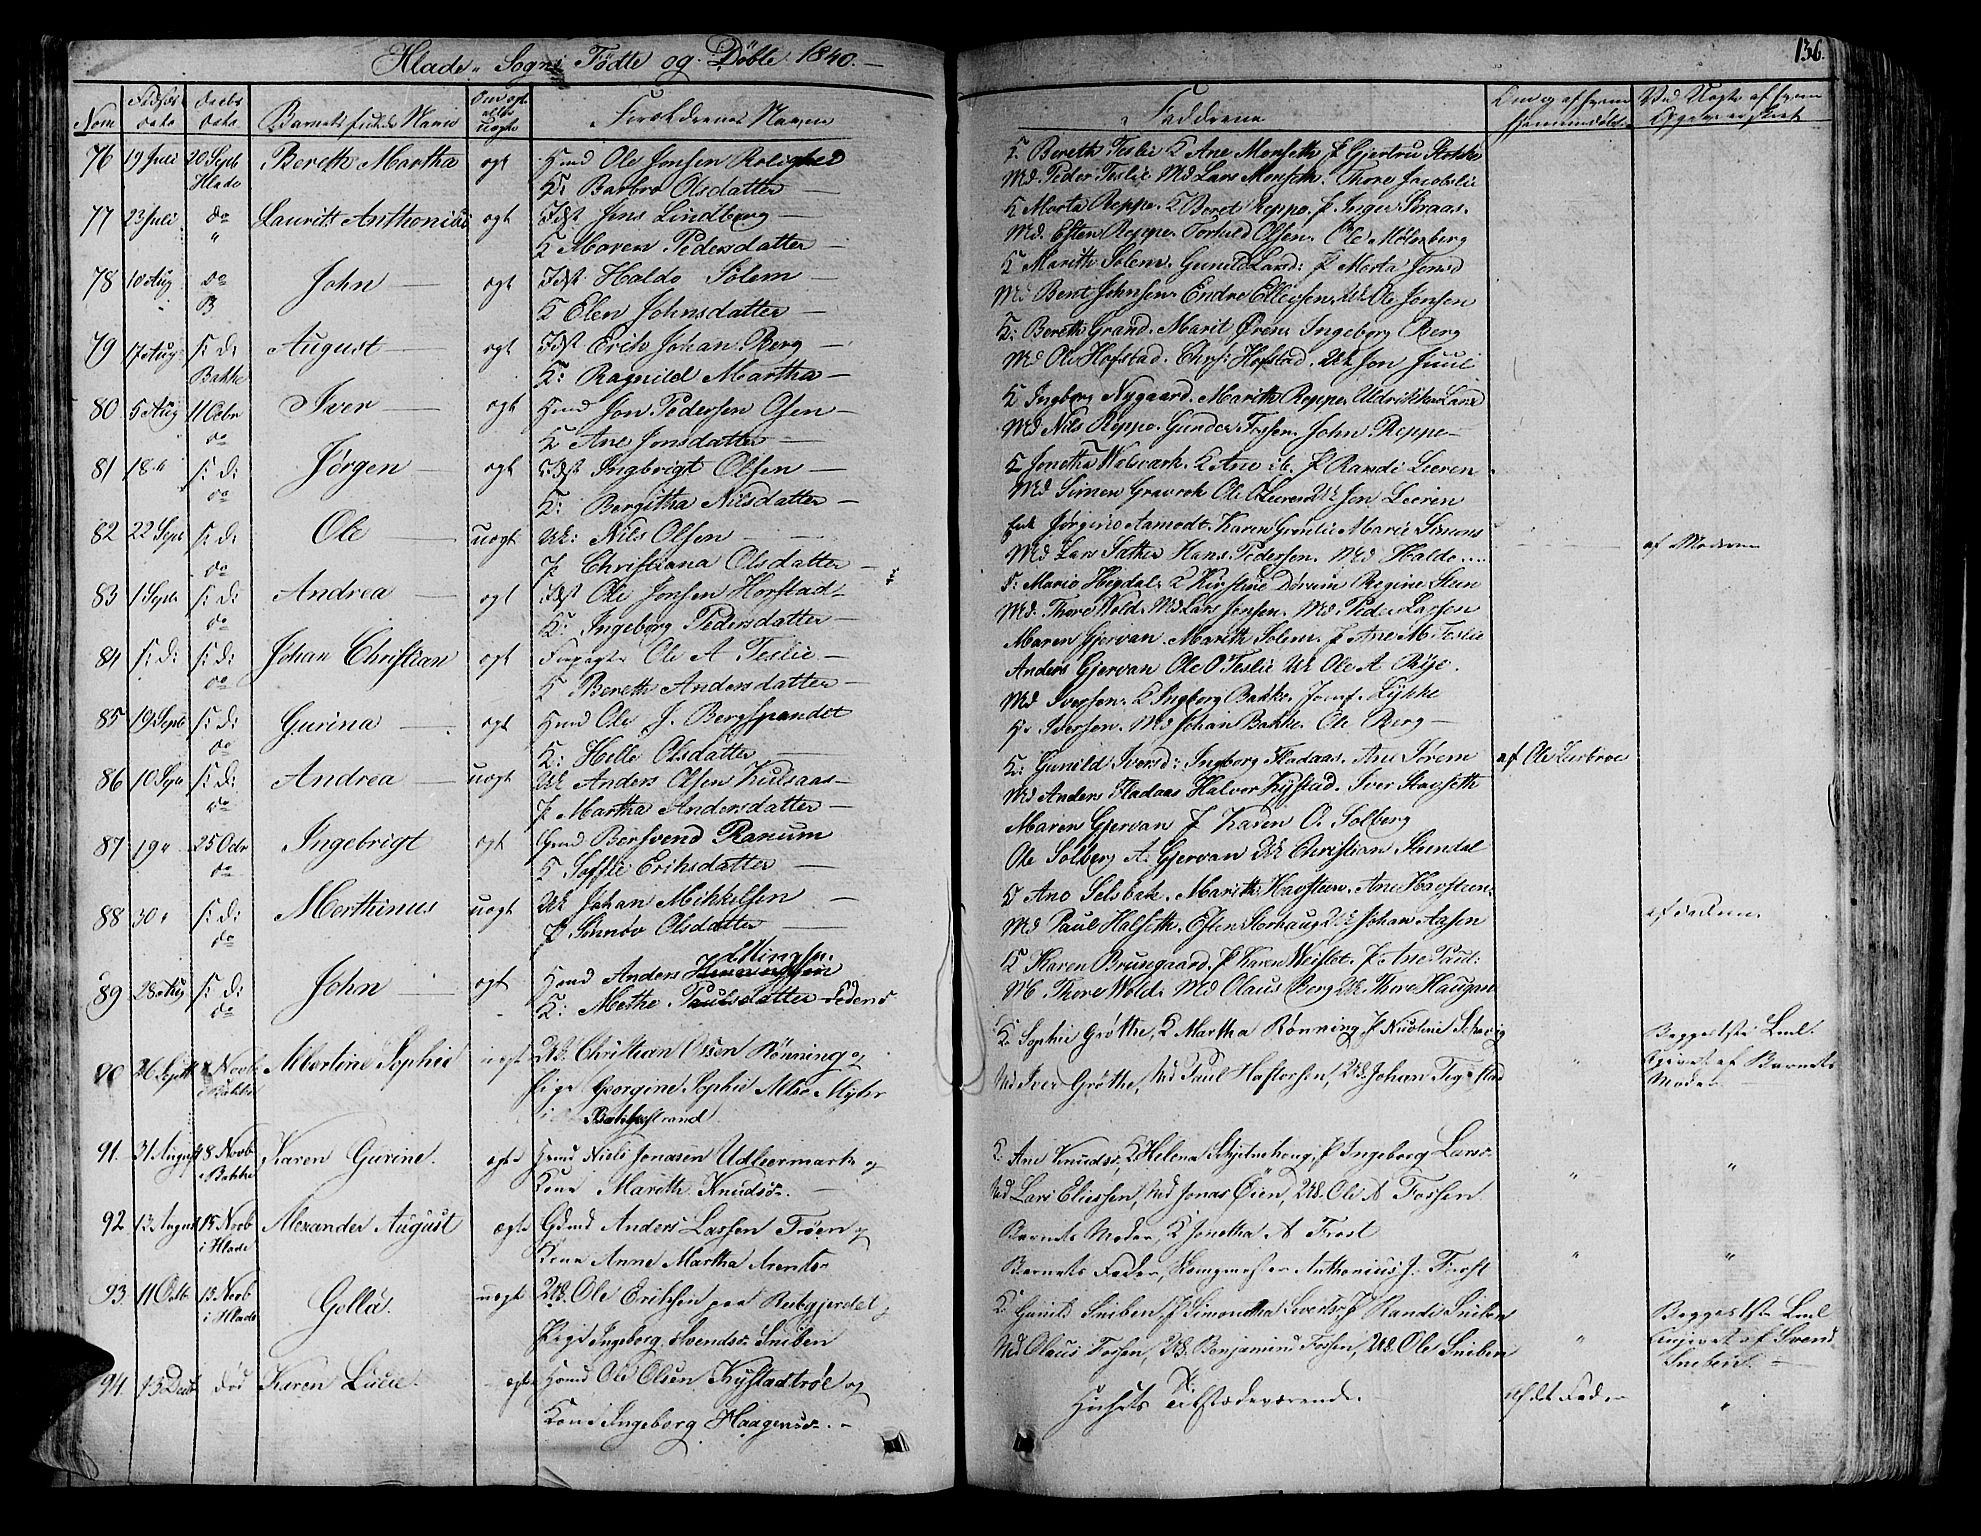 Hlade Sogn Fødte og Døbte 1840.
136.
Nom
Barnets fulde Navn
ægte eller uægte
Forældrenes Navne
Faddrene
76 19 Juli 20 Sept Hlade Bereth Martha ægt Huusd Ole Jonsen Rolighed
K: Barbro Olsdatter
K: Bereth Teslie K Ane Monseth P Gjertru
Md. Peder Teslie Md Lars Monseth. Thore Jacobslie
77 23 Juli do Lauritz Anthonius ægt Idst Jens Lindberg
K Maren Pedersdatter
K Marta Reppe. K Beret Reppe. P Inger Straas.
Md. Esten Reppe. Torkild Olsen. Ole Mølnberg
78 10 Aug do B John ægt Idst Haldo Solem
K Elen Johnsdatter
K Marith Solem. Gunild Larsd: P Marta Jonsd
Md Bent Johnsen. Endre Ellevsen. Uk Ole Jonsen
79 17 Aug s: d: Bakke August ægt Idst Erik Johan Berg
K: Ragnild Martha
K: Bereth Grand. Marit Ören Ingeborg Berg
Md Ole Hofstad. Chrs: Hofstad. Uk Jon Juul
80 5 Aug 11 Octbr do Iver ægt Huusd Jon Pedersen Osen
K Ane Jonsdatter
K Ingborg Nygaard. Marith Reppe. Uldrikke Lund
Md Nils Reppe. Gunder Fossen. John Reppe
81 18 " s: d: do Jørgen ægt Idst Ingbrigt Olsen
K: Bergitha Nilsdatter
K Jonetha Wolsvark. K Ane ib. P Randi Leeren
Md Simon Gravrok Ole Leeren Uk Jon Leeren
82 22 Sept s: d: do Ole uægt Uk: Nils Olsen
P Christiana Olsdatter
Enk Jørgine Aamodt. Karen Grønlie Marie Simons
Md Lars Sæther Hans Pedersen. Md Haldo
af Moderen
83 1 Sept s: d: do Andrea ægt Idst Ole Jonsen Horstad
K: Ingeborg Pedersdatter
Marie Higdal. K Kirstine Dovrim Regine Steen
Md. Thore Wold. Md Lars Jonsen. Md. Peder Larsen
84 s: d: s: d: do Johan Christian ægt Forpagter Ole A Teslie
K Bereth Andersdatter
Maren Gjervan. Marith Solem. P Ane M. Teslie
Anders Gjervan Ole O Teslie Uk Ole A Rye.
85 19 Sept s: d: do Gurina ægt Huusd Ole J. Bergspandet
K: Helle Olsdatter
Md Iversen. K Ingborg Bakke. Josef. Lykke
Hr Iversen. Md Johan Bakke. Ole Berg
86 10 Sept s: d: do Andrea uægt Uk Anders Olsen Kulsaas
P Martha Andersdatter
K: Gunild Iversd: Ingborg Fladaas. Ane Sorem
Md Anders Fladaas Halvor Kystad. Iver Stavseth
af Ole
87 19 " 25 Octr do Ingebrigt ægt Gmd Bersvend Ranum
K Soffie Eriksdatter
Maren Gjervan P Karen O. Solberg
Ole Solberg A. Gjervan Uk Christian Stendal
88 30 " s: d: do Morthinus uægt Uk Johan Mikkelsen
P Sennov Olsdatter
K Ane Selsbak. Marith Havsteen. Ane Havsteen
Md Paul Halseth. Esten Storhaug Uk Johan Aasen
af Faderen
89 28 Aug s: d: do John ægt Huusd Anders Ellingsen
K: Methe Paulsdatter
K Karen Brunsgaard. P Karen Weislet. P Ane Paul:
Md Thore Wold. Md Olaus Berg Uk Thore Haugan
90 26 Sept 8 Novb i Bakke Albertine Sophie uægt Uk. Christian Olsen Rønning og
Pige Georgine Sophie Myhr
i Bakkestrand
K. Sophie Grøthe, K Martha Rønning, P Nicoline Schevig
Md Iver Grøthe, Md Paul Haftorsen, Uk. Johan Tigestad
Begges 1ste Leil.
opgivet af Barnets
Moder
91. 31 August 8 Novb i Bakke Karen Gurine. ægte Huusd Niels Jonasen Udleermark og
Kone Marith Knudsd.
K. Ane Knudsd., K Helena Schjelnehoug, P Ingeborg Larsd.
Md Lars Eliesen, Md Jonas Øien, Uk. Ole A Fossen.
92. 13 August 15 Novb i Hlade Alexander August ægte Gdmd Anders Larsen Trøen og
Kone Anne Martha Arentsd
Barnets Moder, K Jonetha A Frost
Barnets Fader, Anthonius J. Frost
93. 11 Octb 15 Novb i Hlade Gollá. uægte Uk. Ole Eriksen paa Rubgjerdet
Pige Ingeborg Svendsd. Sniben
K. Gunild Sniben, P Simonetha Sivertsd P Randi Sniben
Md Olaus Fossen, Uk. Benjaminu Fossen, Uk. Ole Sniben
Begges 1ste Leil
Opgivet af Svend
Sniben.
94. 13 Decb død Karen Lucie. ægte Huusd Ole Olsen Kystadtrøe og
Kone Ingeborg Haagensd.
Husets Tilstædeværende.
af dets Fader